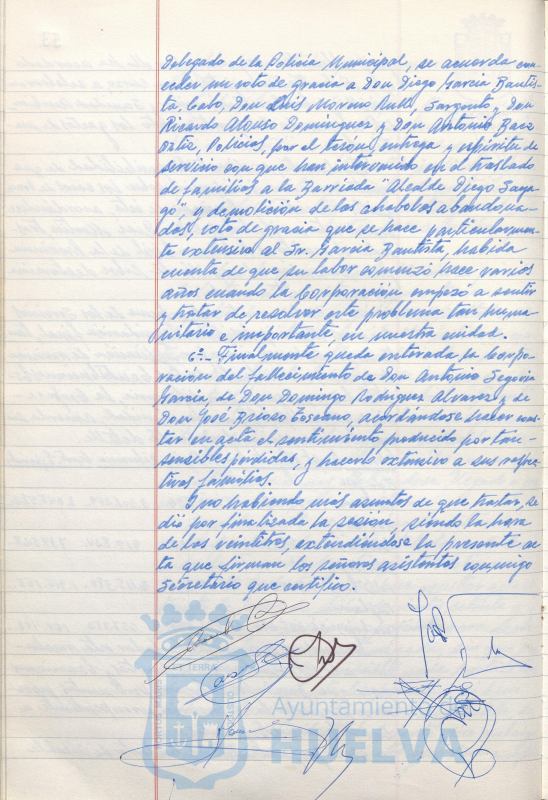 Delegado de la Policía Municipal, se acuerda con-
ceder un voto de gracia a Don Diego García Bautis-
ta, Cabo, Don Luis Moreno Rull, Sargento, y Don
Ricardo Alonso Dominguez y Don Antonio Baez
Ortiz, Policías, por el tesón, entrega y espíritu de
servicio con que han intervenido en el traslado
de familias a la Barriada "Alcalde Diego Saya-
go", y demolición de las chabolas abandona-
das, voto de gracia que se hace particularmen-
te extensivo al Sr. García Bautista, habida
cuenta de que su labor comenzó hace varios
años cuando la Corporación empezó a sentir
y tratar de resolver este problema tan huma-
nitario e importante, en nuestra ciudad.
6º.- Finalmente queda enterada la Corpo-
ración del fallecimiento de Don Antonio Segovia
García, de Don Domingo Rodriguez Alvarez y de
Don José Brioso Toscano, acordándose hacer cons-
tar en acta el sentimiento producido por tan
sensibles pérdidas, y hacerlo extensivo a sus respec-
tivas familias.
Y no habiendo más asuntos de que tratar, se
dió por finalizada la sesión, siendo la hora
de las veintitres, extendiéndose la presente ac-
ta que firman los señores asistentes conmigo
Secretario que certifico.
Ayuntamiento de
HUELVA